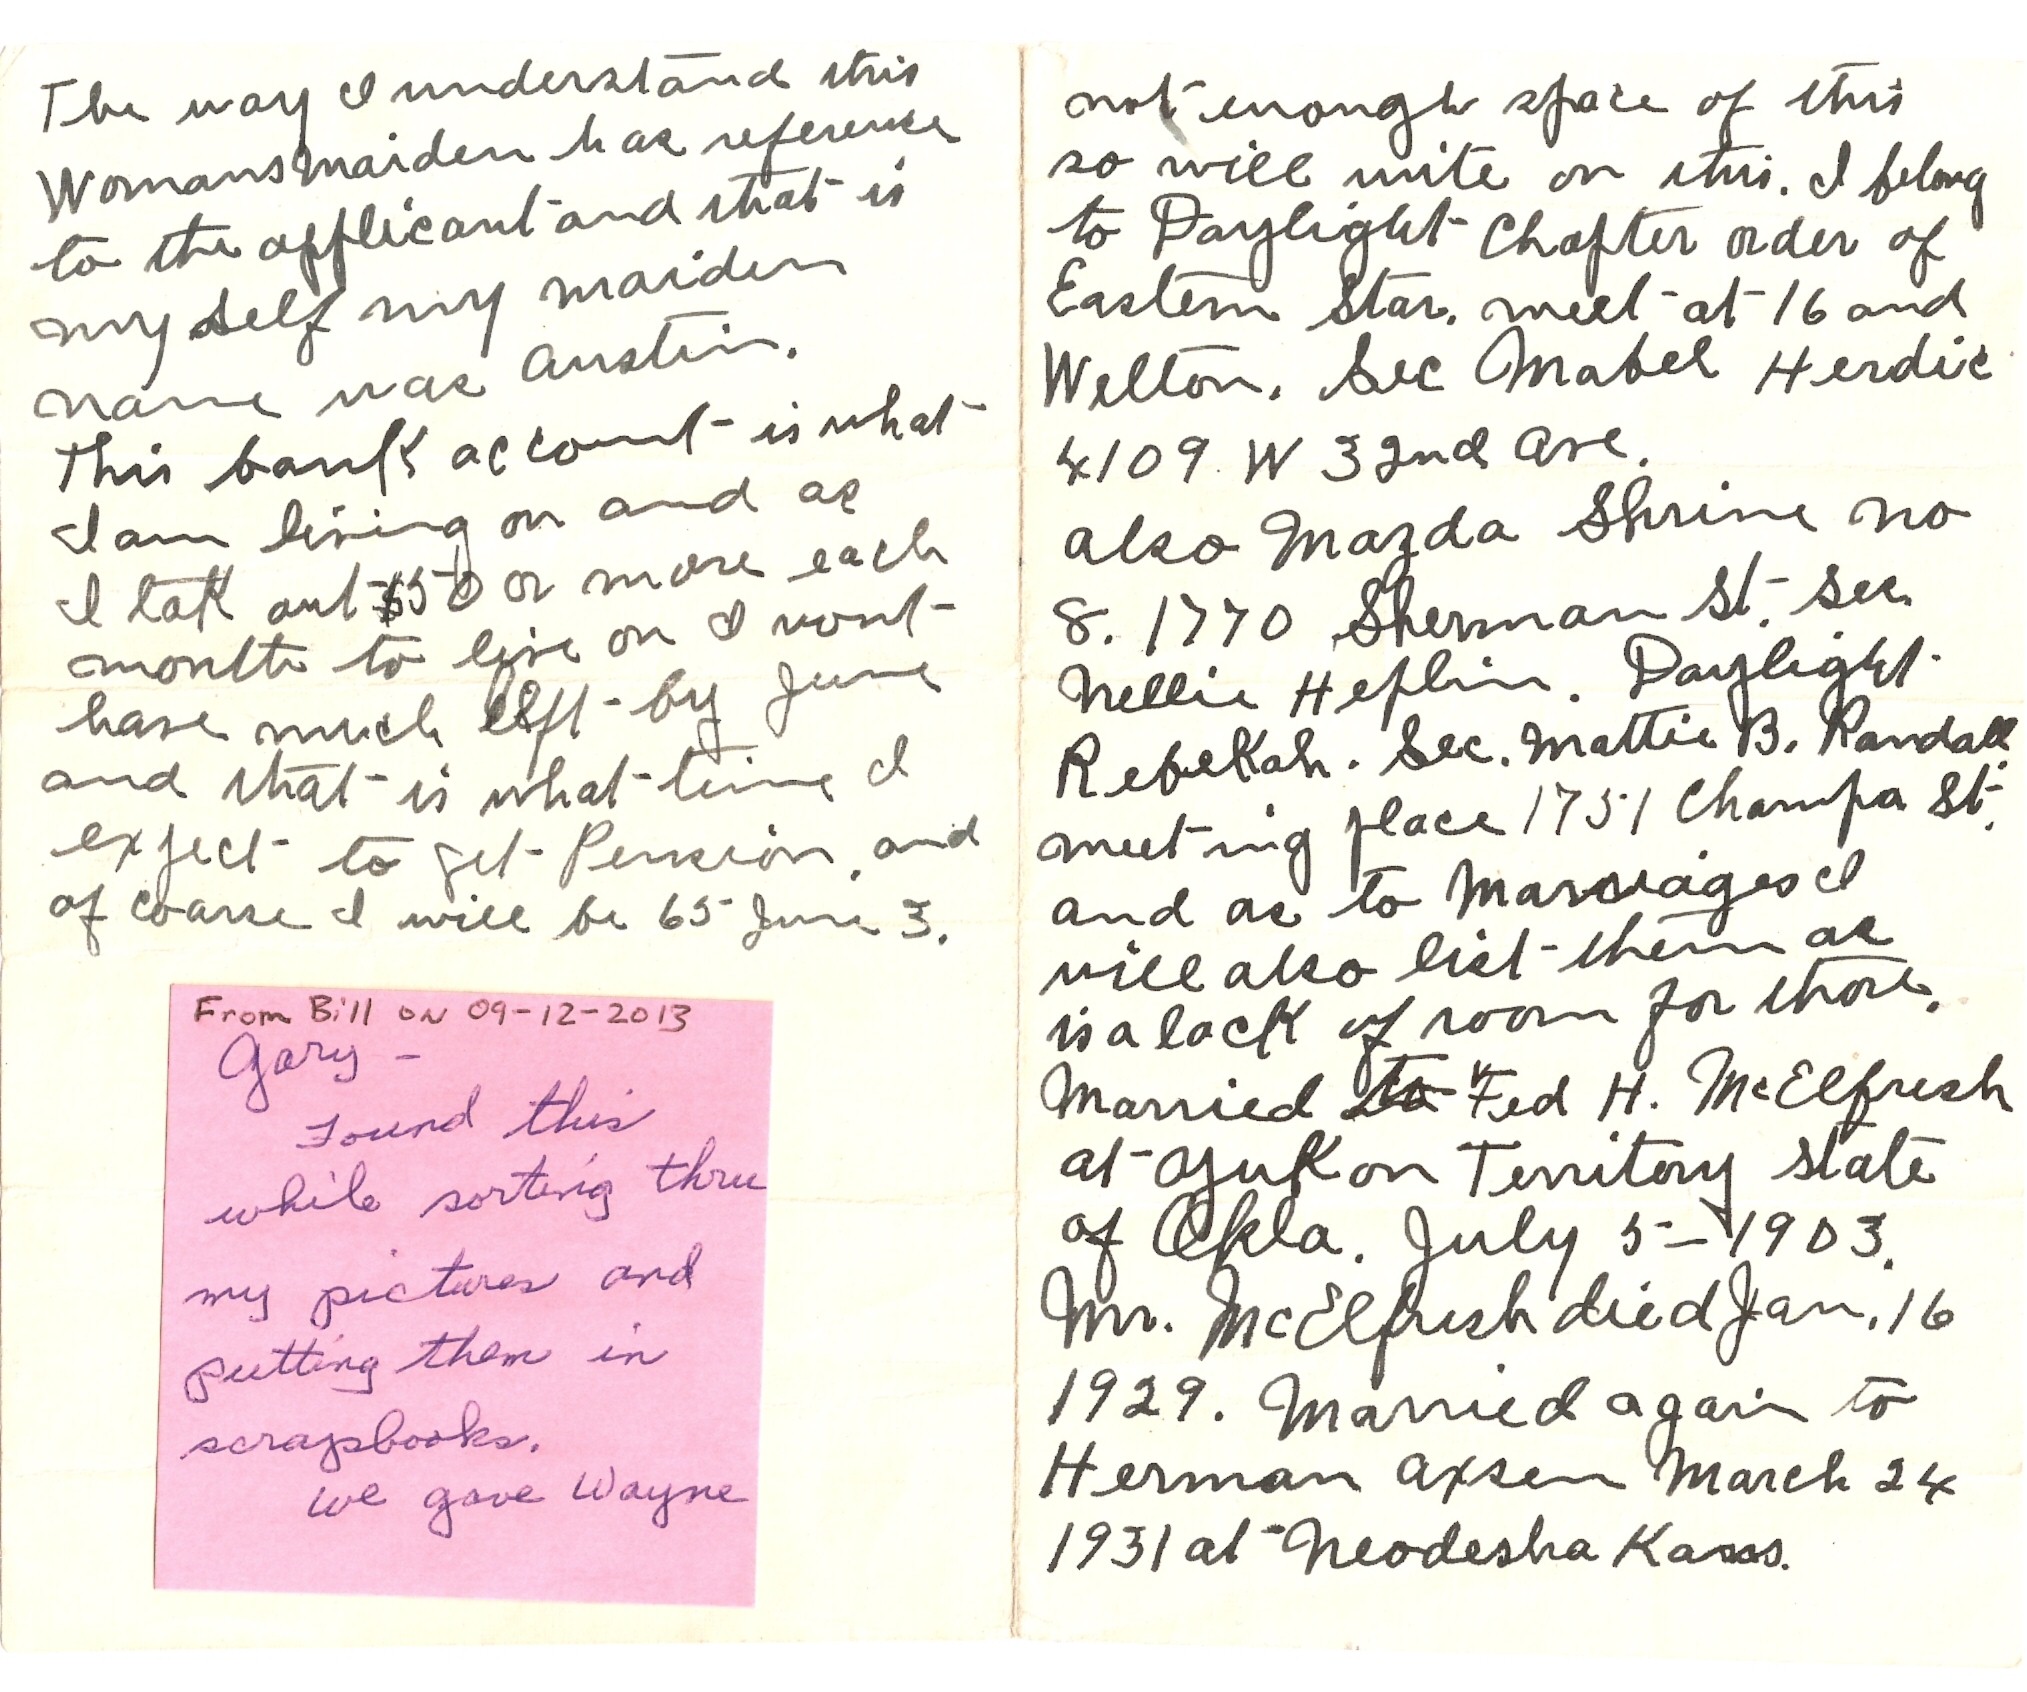 The way I understand this
Womans maiden has reference
to the applicant and that is
my self my maiden
name was Austin.
This bank account is what
I am living on and as
I tak out $50 or more each
month to live on I wont
have much left by June
and that is what time I
expect to get Pension, and
of coarse I will be 65 June 3.
From Bill on 09-12-2013
Gary -
Found this
while sorting thru
my pictures and
putting them in
scrapbooks.
we gave Wayne
not enough space of this
so will write on this. I belong
to Daylight Chapter order of
Eastern Star. meet at 16 and
Welton. Sec Mabel Herdic
4109 W 32nd Ave.
also Mazda Shrine no
8. 1770 Sherman St. Sec.
Nellie Heflin. Daylight
Rebekah. Sec. Mattie B. Randall
meeting place 1751 Champa St.
and as to Marriages I
will also list them as
is a lack of room for those.
Married to Fed H. McElfresh
at Yukon Territory state
of Okla. July 5-1903.
Mr. McElfresh died Jan. 16
1929. Married again to
Herman Axsen March 24
1931 at Neodesha Kans.